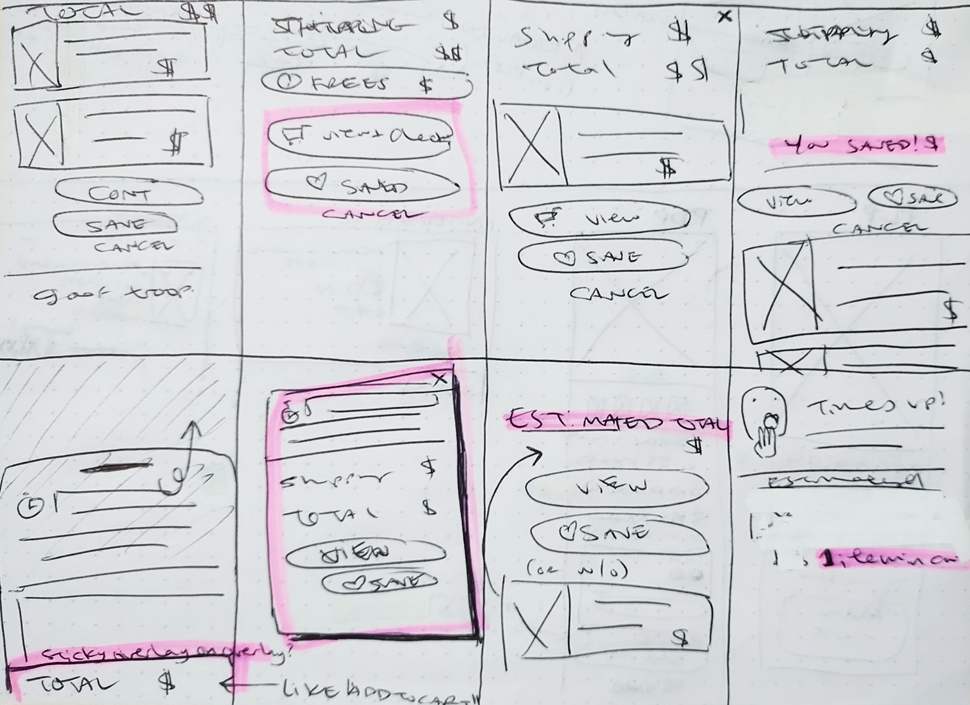 TOTAL $$
$
$
CONT
SAVE
CANCEL
SHIPPING $
TOTAL $$
FREES $
VIEW + Check
♡ SAVED
CANCEL
X
Shippy $
Total $$
$
VIEW
♡ SAVE
CANCEL
SHIPPING $
TOTAL $
YOU SAVED! $
VIEW
♡ SAVE
CANCEL
$
sticky overlay on overlay?
TOTAL $
← LIKE ADD TO CART!!
X
Shippy $
TOTAL $
VIEW
♡ SAVE
ESTIMATED TOTAL
$
VIEW
♡ SAVE
(or w/o)
$
Times up!
Estimated
1 item in car